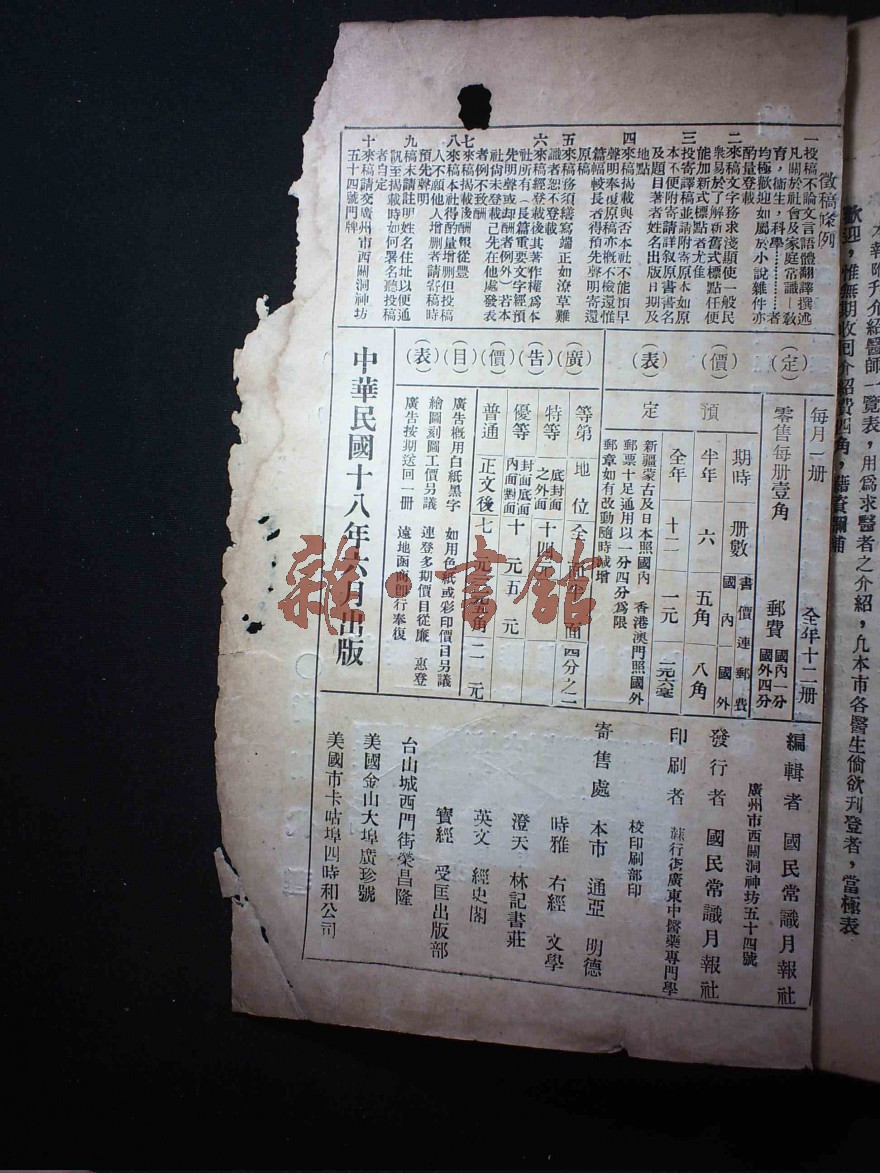 本報附升介紹醫師一覽表，用爲求醫者之介紹，凢本市各醫生倘欲刋登者，當極表
歡迎，惟無期收回介紹費四角，藉資彌補
徵稿條例
一 投稿不論文言語體翻譯撰述
凡關於社會及家庭常識—敎
育，衞生，科學…………者
均極歡迎如屬於小說雜件亦
酌量登載
二 來稿文字務求淺顯使一般民
衆易於了解新舊式標點任便
能加新式標點者尤佳
三 投寄譯稿並請附寄原本如原
本不便附寄請詳叙原書書名
及題目著者姓名出版日期及
地點
四 來稿揭載與否本社不能預早
聲明奉復原稿亦槪不檢還惟
篇幅較長者得預先聲明寄還
原稿
五 來稿務須繕寫端正如潦草難
識者恕不登載
六 來稿經登載後其著作權爲本
社所有（長篇重要文字經預
先明聲或却酬者例外）若本
社尙未登載己先在他處發表
者例不致酬
七 來稿揭載後酬報從豐
八 來稿本社得酌量增删但投稿
人不願他人增删者請寄稿時
預先聲明
九 稿末請註明姓名住址以便通
訊至揭載時如何署名聽投稿
者自定
十 來稿請交廣州市西關洞神坊
五十四號門牌
（定）（價）（表）
每月一册 全年十二册
零售每册壹角 郵費 國內一分 國外四分
預定
期時 册數 書價連郵費 國內 國外
半年 六 五角 八角
全年 十二 一元 一元六毫
新疆蒙古及日本照國內 香港澳門照國外
郵票十足通用以一分四分爲限
郵章如有改動隨時减增
（廣）（告）（價）（目）（表）
等第 地位 全面 半面 四分之一
特等 底封面之外面 十四元
優等 封面底面內面對面 十元 五元
普通 正文後 七元 三元五角 二元
廣告概用白紙黑字 如用色紙或彩印價目另議
繪圖刻圖工價另議 連登多期價目從廉 惠登
廣告按期送回一册 遠地函商卽行奉復
中華民國十八年六月出版
編輯者 國民常識月報社
廣州市西關洞神坊五十四號
發行者 國民常識月報社
印刷者 蔴行街廣東中醫藥專門學
校印刷部印
寄售處 本市 通亞 明德
時雅 右經 文學
澄天 林記書莊
英文 經史閣
寶經 受匡出版部
台山城西門街榮昌隆
美國金山大埠廣珍號
美國市卡咕埠四時和公司
雜·書館